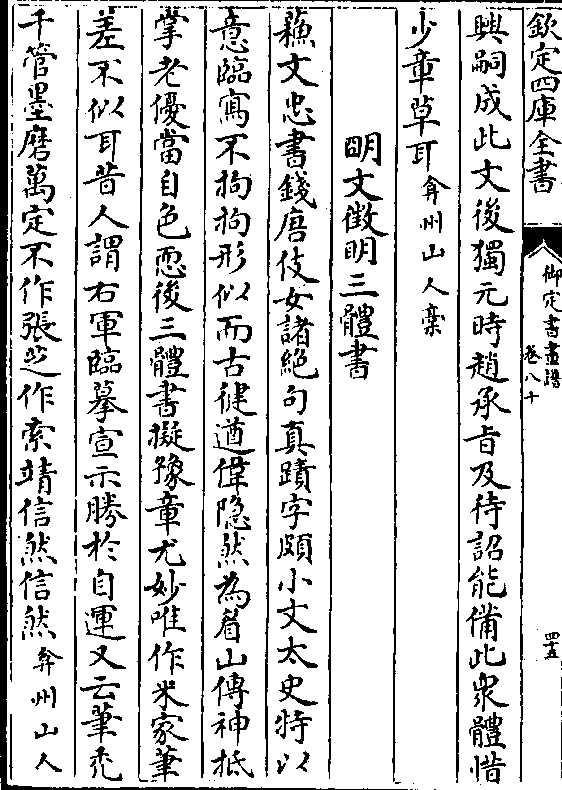 欽定四庫全書
御定書畫譜
卷八十
四十五
興嗣成此文後獨元時趙承旨及待詔能備此衆體惜
少章草耳弇州山人稾
明文徵明三體書
蘓文忠書錢唐伎女諸絶句真蹟字頗小文太史特以
意臨寫不拘拘形似而古健遒偉隐然為眉山傳神抵
掌老優當自色恧後三體書擬豫章尤妙唯作米家筆
差不似耳昔人謂右軍臨摹宣示勝於自運又云筆秃
千管墨磨萬定不作張芝作索靖信然信然弇州山人